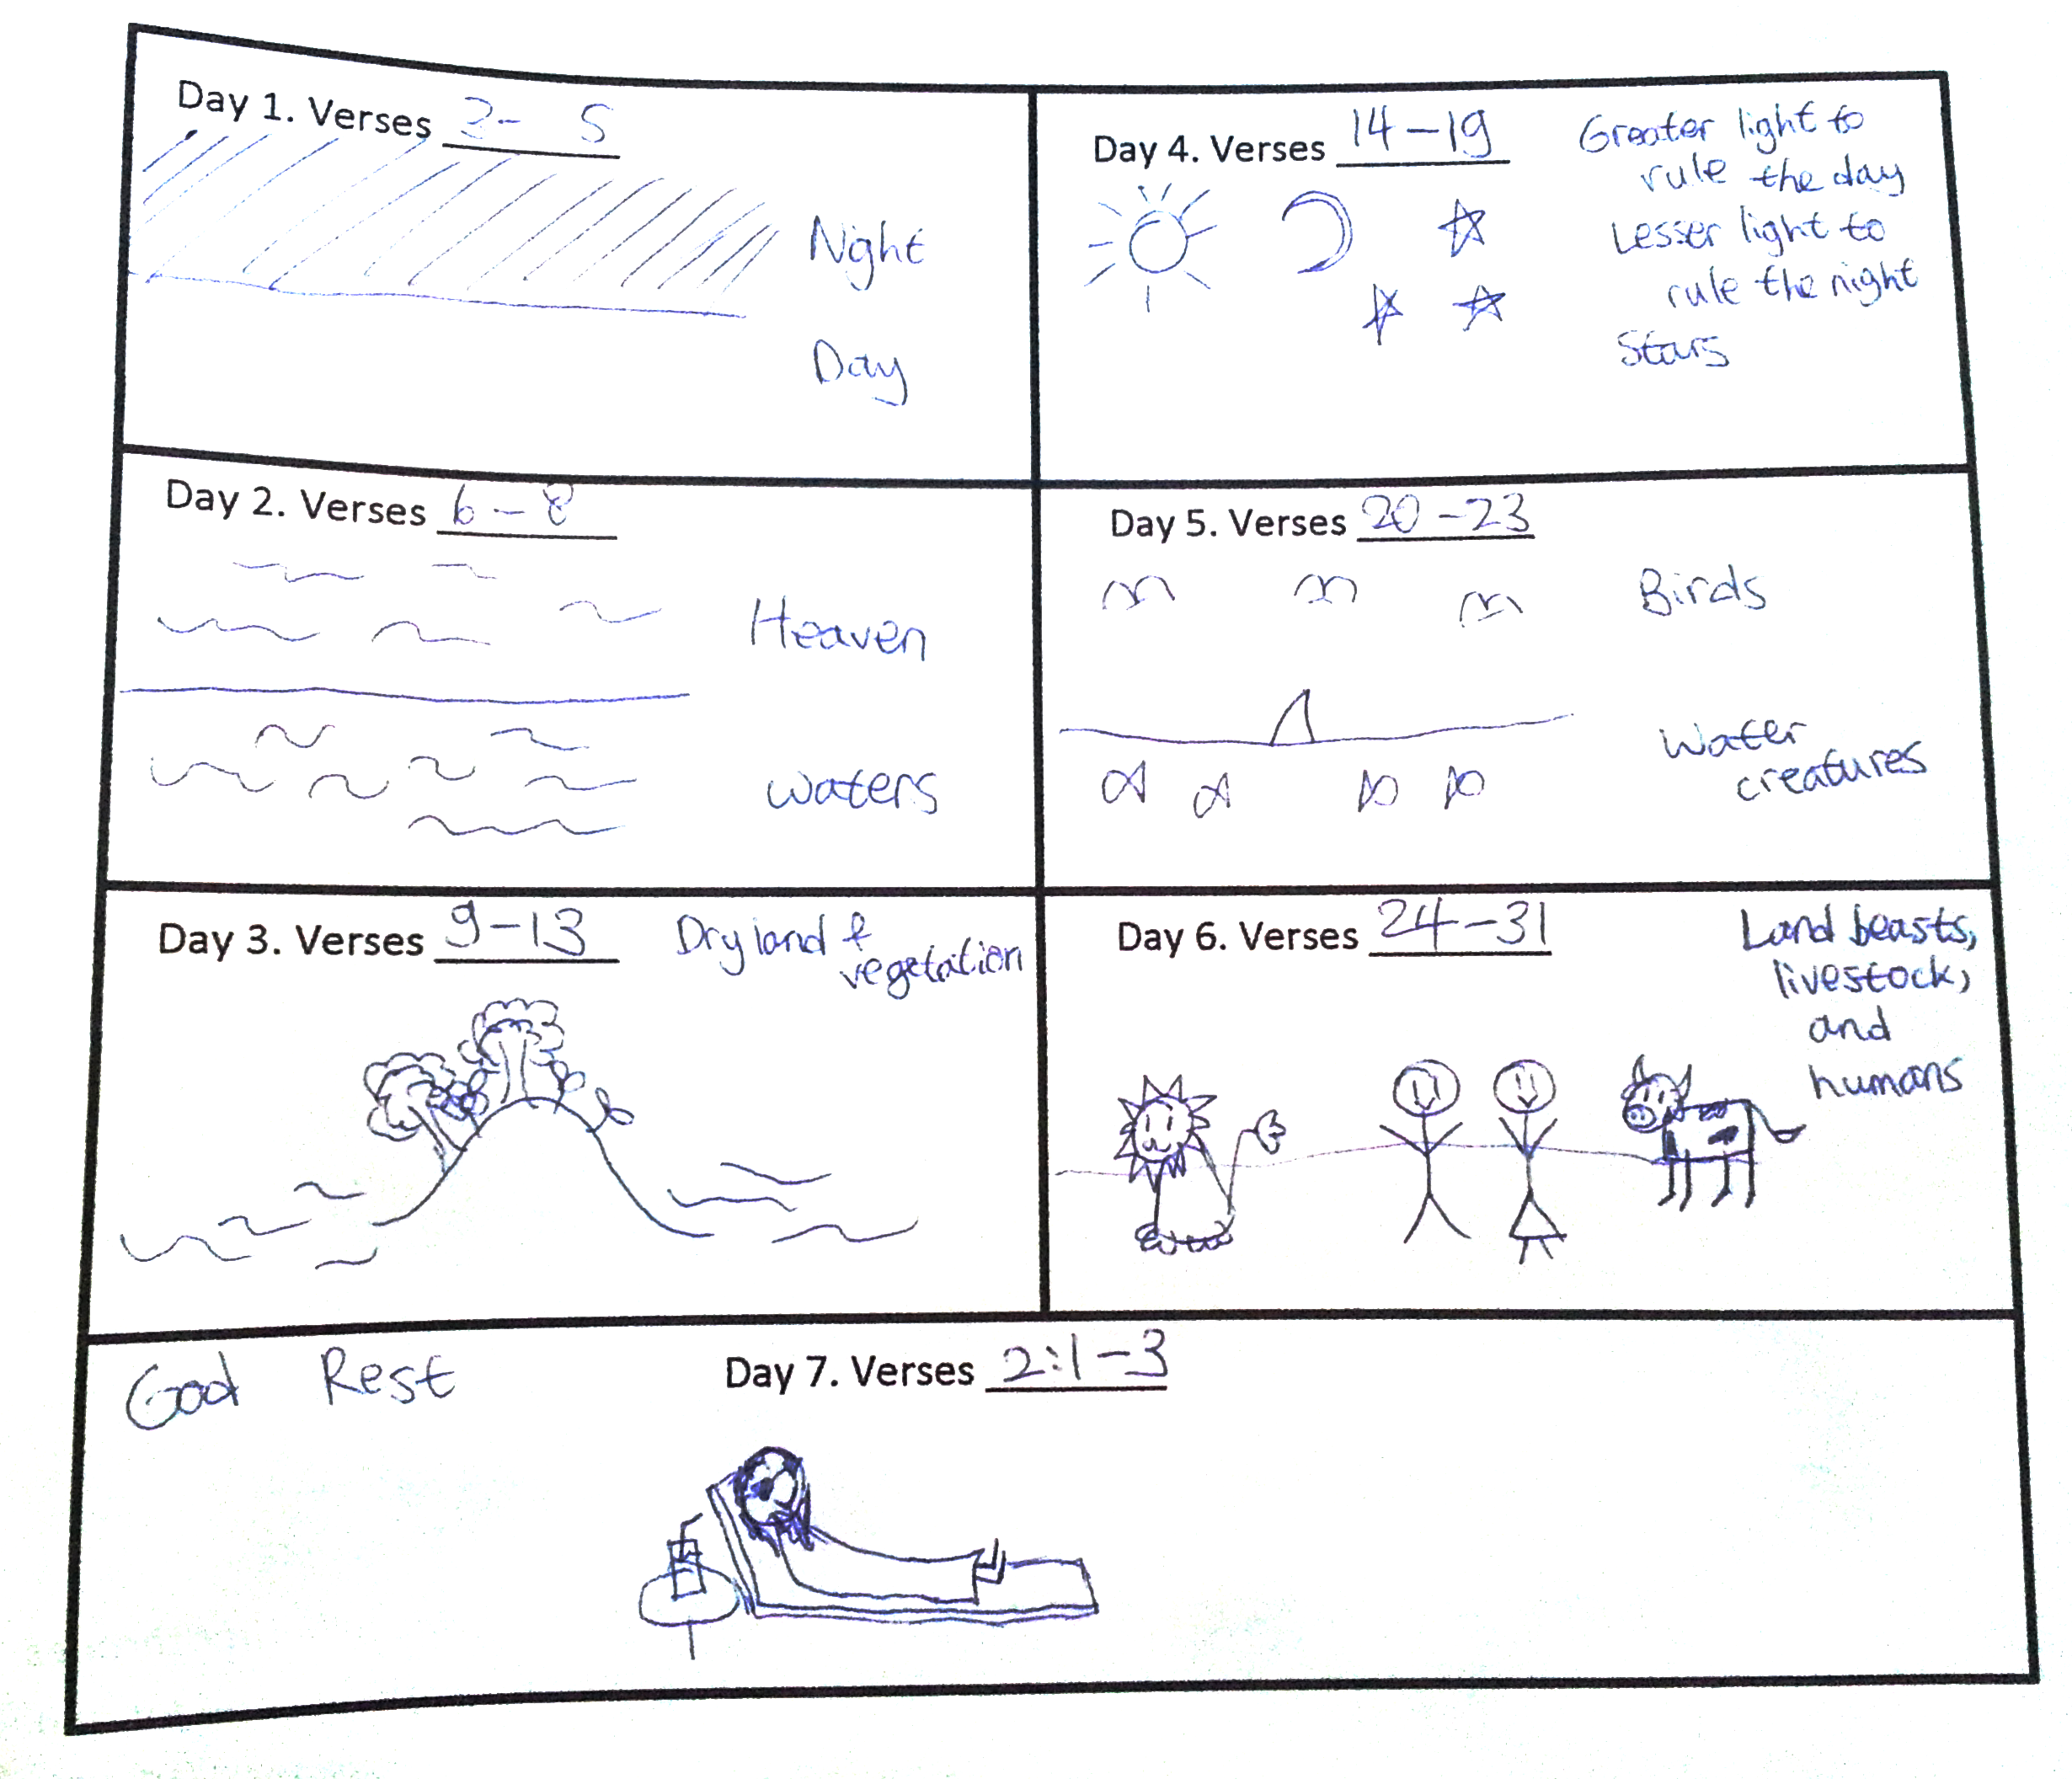 Day 1. Verses 3- 5
Night
Day
Day 2. Verses 6-8
Heaven
waters
Day 3. Verses 9-13
Dry land &
vegetation
Day 4. Verses 14-19
Greater light to
rule the day
Lesser light to
rule the night
Stars
Day 5. Verses 20-23
Birds
Water
creatures
Day 6. Verses 24-31
Land beasts,
livestock,
and
humans
God Rest
Day 7. Verses 2:1-3